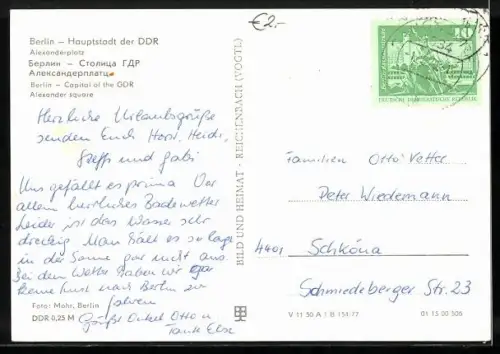 €2.-
Berlin – Hauptstadt der DDR
Alexanderplatz
Берлин – Столица ГДР
Александерплатц
Berlin – Capital of the GDR
Alexander square
Herzliche Urlaubsgrüße
senden Euch Horst, Heidi,
Steffi und Gabi
Uns gefällt es prima Vor
allem herrliches Badewetter
Leider ist das Wasser sehr
dreckig. Man hält es so lange
in der Sonne gar nicht aus.
Bei dem Wetter haben wir gar
keine Lust nach Berlin zu
fahren
Grüßt Onkel Otto u
Tante Else
Foto: Mohr, Berlin
DDR 0,25 M
BILD UND HEIMAT · REICHENBACH (VOGTL)
10
DEUTSCHE DEMOKRATISCHE REPUBLIK
Familien Otto Vetter
Peter Wiedemann
4401 Schköna
Schmiedeberger Str. 23
V 11 50 A 1 B 154/77
01 15 00 506